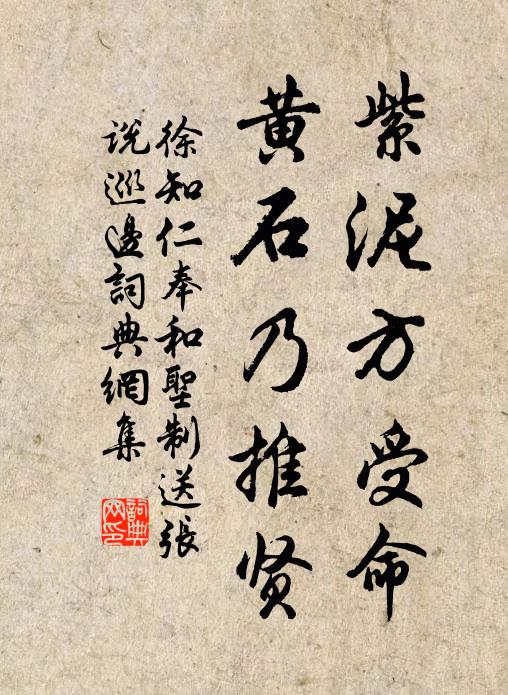 紫泥方受命
黄石乃推贤
徐知仁奉和聖制送張
说巡邊詞典網集
詞典
网印